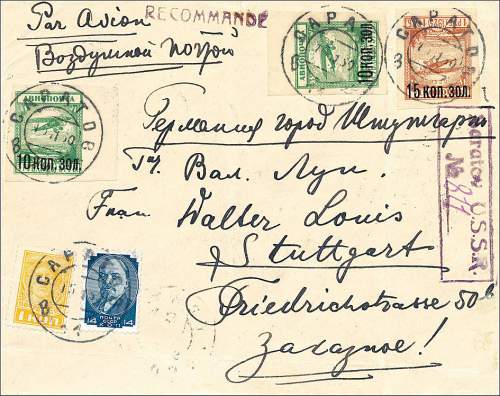 Par Avion
RECOMMANDÉ
Воздушной почтой
САРАТОВ
АВИОПОЧТА
10 КОП. ЗОЛ.
САРАТОВ
15 КОП. ЗОЛ.
САРАТОВ
АВИОПОЧТА
10 КОП. ЗОЛ.
Германия город Штутгарт
Гч. Вал. Луи.
Frau Walter Louis
Stuttgart
Friedrichstrasse 50 b
Заказное!
Saratov, U.S.S.R.
№
САРАТОВ
1 КОП.
ПОЧТА
СССР
14 КОП 14